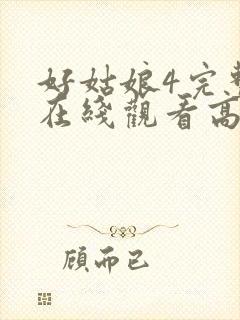 好姑娘4完整
在线觀看高
顾而已